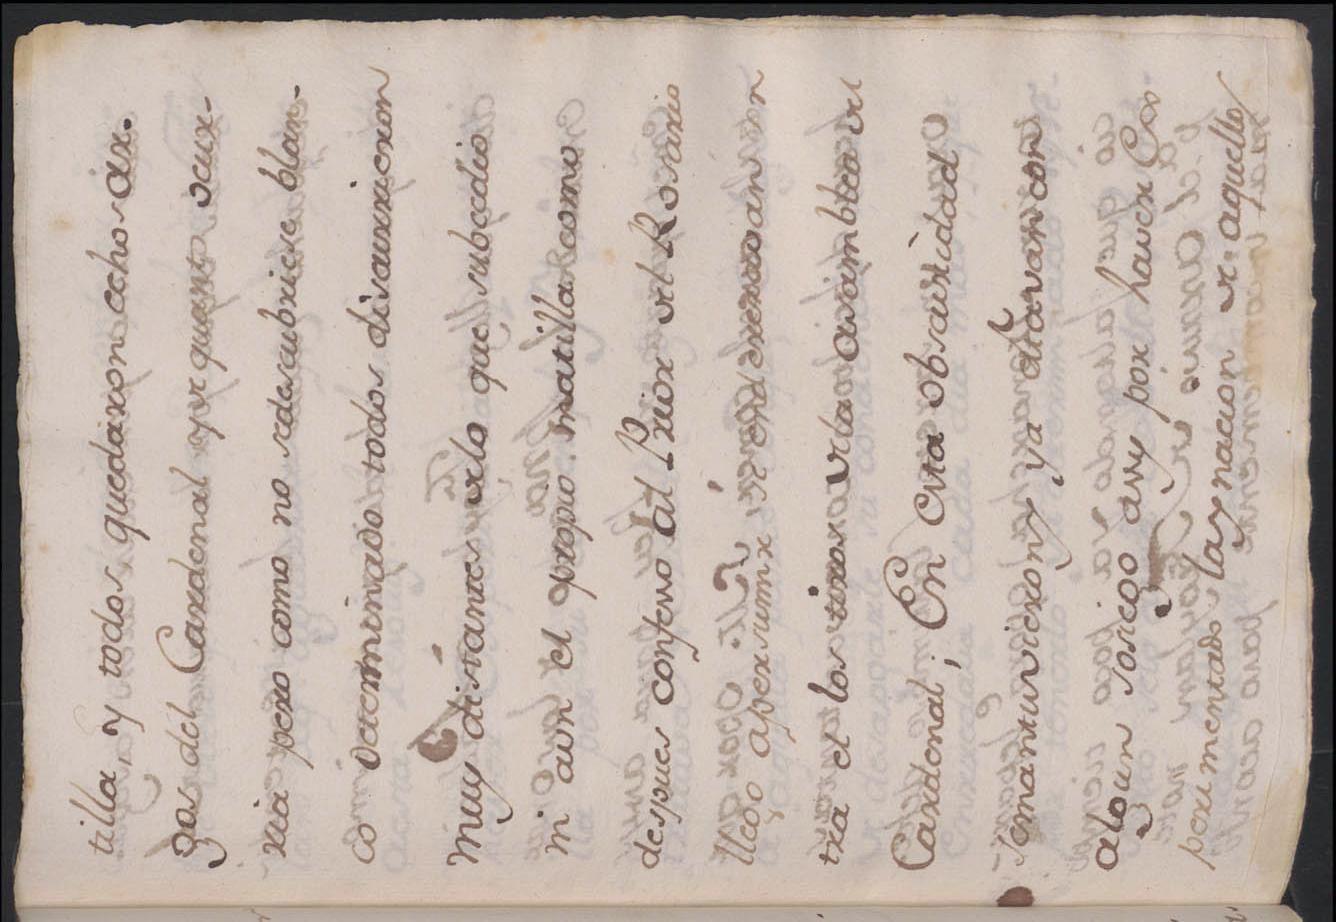 tilla, y todos quedaron echos ar-
gos del Cardenal, y de quanto ocur-
ria pero como no se descubriese blan-
co determinado todos discurrieron
muy distantes de lo que subcedio
ni aun el propio matilla como
despues confeso al Prior del Rosario
llego a persumir se enderesavan
tra el los tiros de la asamblea del
Cardenal; En esta obscuridad
se mantuvieron, y ya estavan con
algun sosiego asy por haver Es
perimentado la ynacion de aquellos